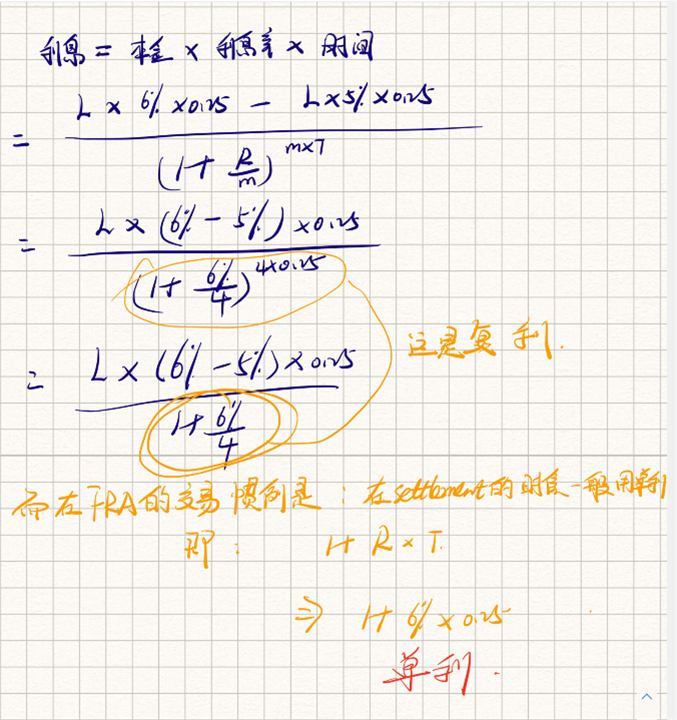 利息 = 本金 × 利息率 × 时间
= \frac{L × 6% × 0.25 - L × 5% × 0.25}{(1 + \frac{R}{m})^{m×T}}
= \frac{L × (6% - 5%) × 0.25}{(1 + \frac{6%}{4})^{4×0.25}}
这是复利.
= \frac{L × (6% - 5%) × 0.25}{1 + \frac{6%}{4}}
而在FRA的交易惯例是:在settlement的时候一般用单利
即: 1 + R × T.
⇒ 1 + 6% × 0.25
单利.